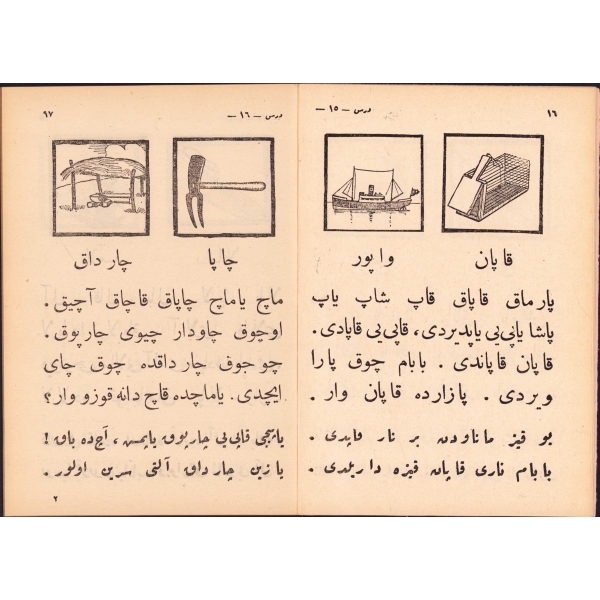 ١٦
درس – ١٥ –
قاپان
واپور
پارماق قاپاق قاپ شاپ یاپ
پاشا یاپی‌یی یاپدیردی، قاپی‌یی قاپادی.
قاپان قاپاندی . بابام چوق پارا
ویردی . پازارده قاپان وار .
بو قیز ماناودن بر نار قاپدی .
بابام ناری قاپان قیزه داریلدی .
درس – ١٦ –
١٧
چاپا
چارداق
ماچ یاماچ چاپاق قاچاق آچیق .
اوجوق چاودار چیوی چارپوق .
چوجوق چارداقده چوق چای
ایچدی. یاماجده قاچ دانه قوزو وار؟
یاپیجی قاپی‌یی چارپوق یاپمش ، آچ ده باق !
یازین چارداق آلتی سرین اولور .
٢